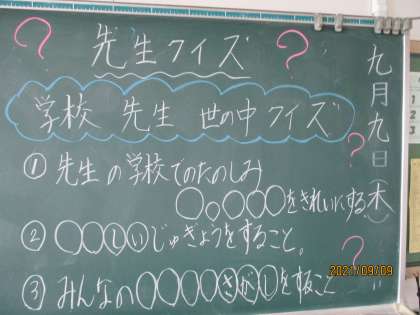 先生クイズ
学校 先生 世の中 クイズ
① 先生の学校でのたのしみ
○○○○○をきれいにする
② ○○しいじゅぎょうをすること。
③ みんなの○○○○さがしをすること
九月九日(木)
?
?
?
?
2021/09/09